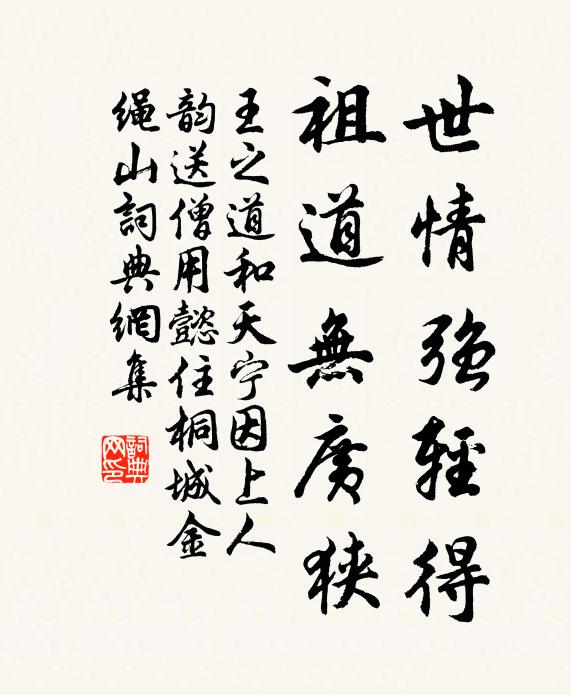 世情強輕得
祖道無廣狹
王之道和天宁因上人
韵送僧用懿住桐城金
绳山詞典網集
詞典网印